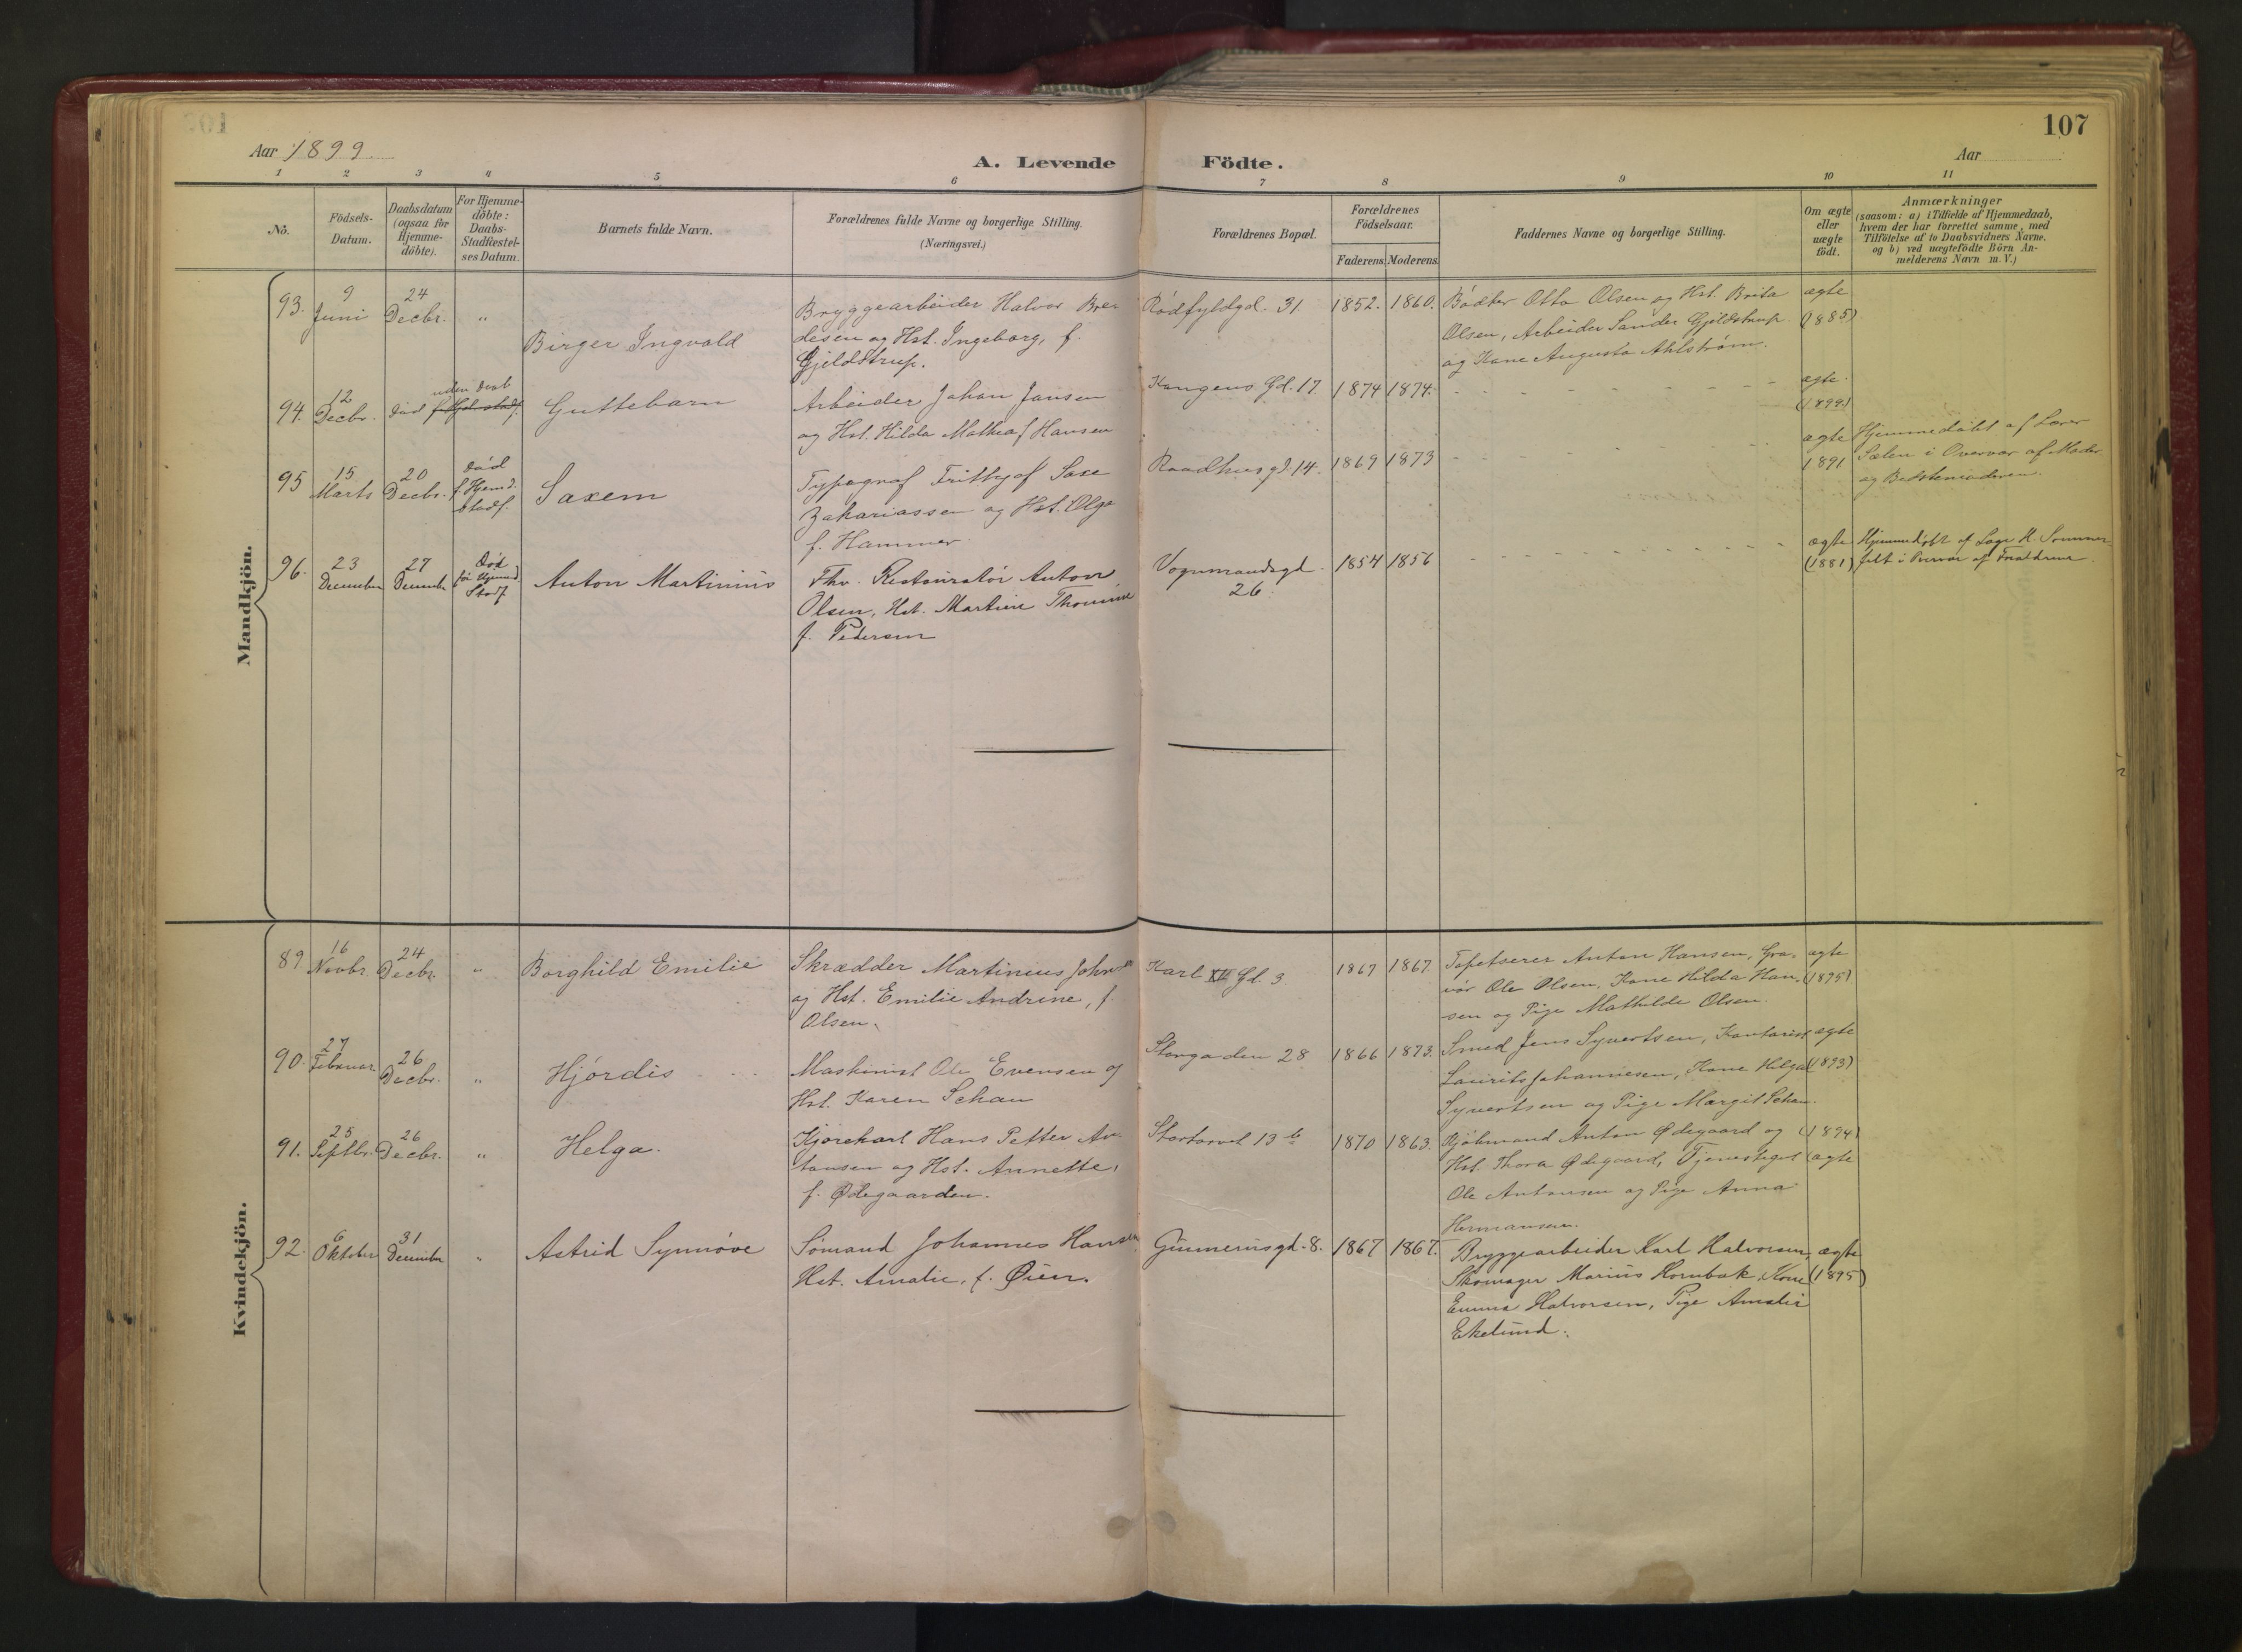 107
Aar 1899. Aar
A. Levende Födte.
1 2 3 4 5 6 7 8 9 10 11
No.
Födsels-
Datum.
Daabsdatum
(ogsaa for
Hjemme-
döbte).
For Hjemme-
döbte:
Daabs-
Stadfæstel-
ses Datum.
Barnets fulde Navn.
Forældrenes fulde Navne og borgerlige Stilling.
(Næringsvei.)
Forældrenes Bopæl.
Forældrenes
Födselsaar.
Faderens. Moderens.
Faddernes Navne og borgerlige Stilling.
Om ægte
eller
uægte
födt.
Anmærkninger
(saasom: a) i Tilfælde af Hjemmedaab,
hvem der har forrettet samme, med
Tilföielse af to Daabsvidners Navne.
og b) ved uægtefödte Börn An-
melderens Navn m. V.)
Mandkjön.
93.
9
Juni
24
Decbr.
"
Birger Ingvald
Bryggearbeider Halvor Bren
desen og Hst. Ingeborg, f.
Gjeldstrup.
Rödfyldgd. 31
1852. 1860.
Bödker Otto Olsen og Hst. Brita
Olsen, Arbeider Sander Gjeldstrup
og Kone Augusta Ahlström.
ægte
(1885)
94.
12
Decbr.
död
uden daab
Guttebarn
Arbeider Johan Jansen
og Hst. Hilda Mathea f Hansen
Kongens Gd. 17
1874 1874.
ægte.
(1899)
95
15
Marts
20
Decbr.
död
f. Hjemd.
Stadf.
Saxem
Typograf Frithjof Saxe
Zakariassen og Hst. Olga
f. Hammer
Raadhusgd. 14.
1869 1873
ægte
1891
Hjemmedöbt af Lærer
Sælen i Overvær af Moder
og Bedstemoderen.
96.
23
December
27
Decembr
Död
för Hjemmed.
Stadf
Anton Martinius
Fhv. Restauratör Anton
Olsen, Hst. Martine Thomine
f. Pedersen
Vognmandsgd.
26.
1854 1856
ægte
(1881)
Hjemmedöbt af Læge H. Sommer-
felt i Overvær af Forældrene.
Kvindekjön.
89
16
Novbr.
24
Decbr.
"
Borghild Emilie
Skrædder Martinius Johnsen
og Hst. Emilie Andrine, f.
Olsen.
Karl XII Gd. 3
1867 1867
Tapetserer Anton Hansen, Gra-
vör Ole Olsen, Kone Hilda Han-
sen og Pige Mathilde Olsen.
ægte
(1895)
90.
27
Februar
26
Decbr.
"
Hjördis
Maskinist Ole Evensen og
Hst. Karen Schau
Storgaden 28
1866 1873.
Smed Jens Syvertsen, Kontorist
Laurits Johannesen, Kone Helga
Syvertsen og Pige Margit Schau.
ægte
(1893)
91.
25
Septbr.
26
Decbr.
"
Helga.
Kjörekarl Hans Petter An-
tonsen og Hst. Annette,
f. Ødegaarden.
Stortorvet 13 b
1870 1863.
Kjöbmand Anton Ødegaard og
Hst. Thora Ødegaard, Tjenestegut
Ole Antonsen og Pige Anna
Hermansen.
(1894)
ægte
92.
6
Oktober
31
December
"
Astrid Synnöve
Sömand Johannes Hansen
Hst. Amalie, f. Øien.
Grünnerusgd. 8.
1867 1867.
Bryggearbeider Karl Halvorsen,
Skomager Marius Hornbæk, Kone
Emma Halvorsen, Pige Amalie
Ekelund.
ægte
(1895)